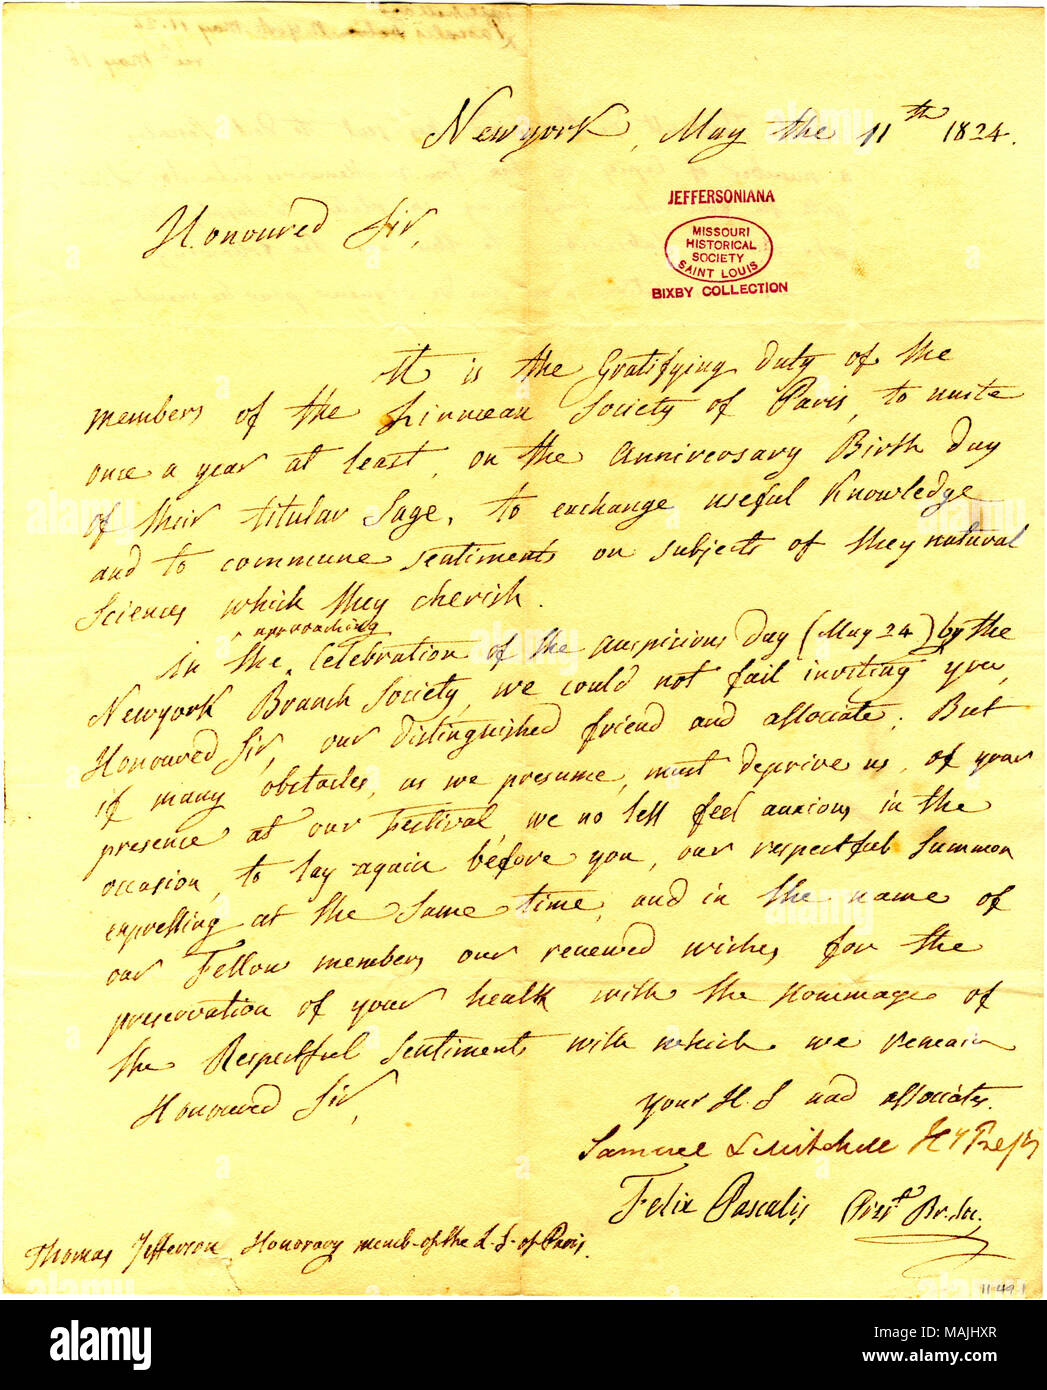 Newyork, May the 11th 1824.
JEFFERSONIANA
MISSOURI
HISTORICAL
SOCIETY
SAINT LOUIS
BIXBY COLLECTION
Honoured Sir,
It is the Gratifying duty of the
members of the Linnæan Society of Paris, to unite
once a year at least, on the Anniversary Birth day
of their titular Sage, to exchange useful Knowledge
and to commune sentiments on subjects of they natural
Sciences which they cherish.
approaching
in the Celebration of the auspicious day (May 24) by the
Newyork Branch Society, we could not fail inviting you,
Honoured Sir, our distinguished friend and associate. But
if many obstacles, as we presume, must deprive us, of your
presence at our Festival, we no less feel anxious in the
occasion, to lay again before you, our respectful Summon
expressing at the same time, and in the name of
our Fellow members our renewed wishes for the
preservation of your health with the Hommage of
the Respectful Sentiments with which we remain
Honoured Sir,
your H. S and associates.
Samuel L Mitchill
Felix Pascalis Prest Br. Soc.
Thomas Jefferson Honorary memb. of the L. S. of Paris.
11 49 1
alamy
Image ID: MAJHXR
www.alamy.com